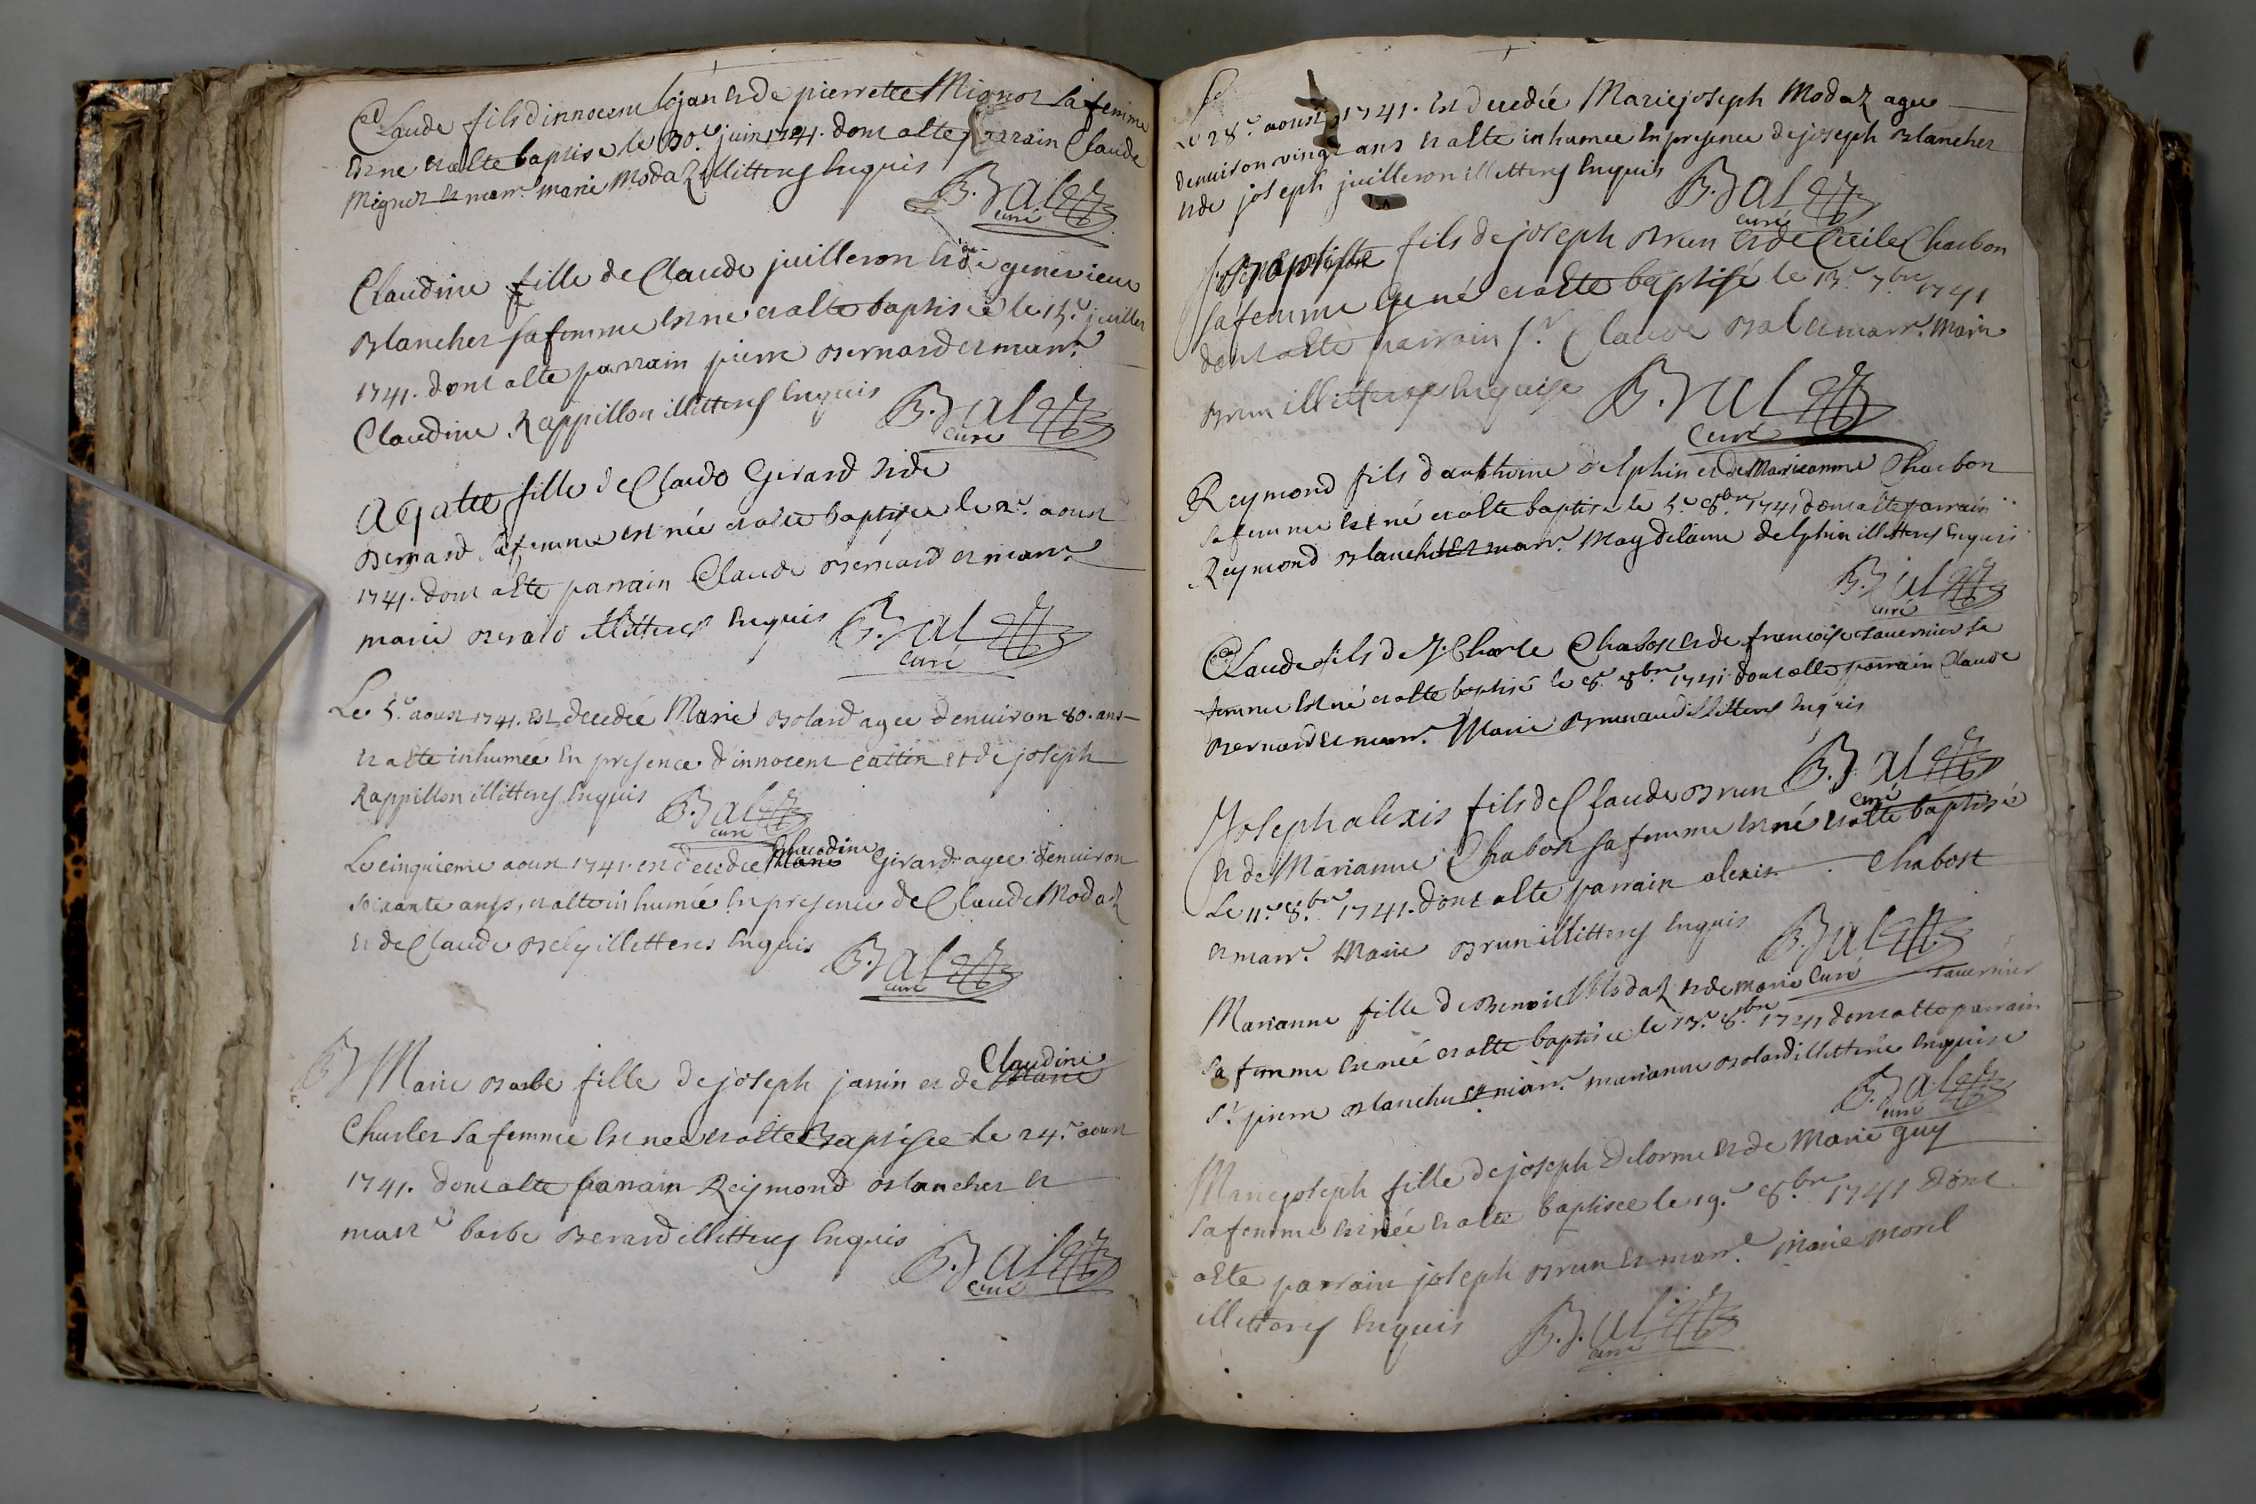 Claude fils d'innocent Cojan et de pierrette Mignot sa femme
est ne et a este baptise le 30.e juin 1741. dont a este parrain Claude
Mignot et marr.e marie Modaz illitterez enquis
B. Bal curé
Claudine fille de Claude juilleron et de genevieve
Blanchet sa femme est ne et a este baptisée le 15.e juillet
1741. dont a este parrain pierre Bernard et marr.e
Claudine Rappillon illitterez enquis B. Bal
curé
Agatte fille de Claude Girard et de
Bernard sa femme est née et a este baptisee le 2.e aoust
1741. dont a este parrain Claude Bernard et marr.e
marie Berard illitterez enquis B. Bal
curé
Le 5.e aoust 1741. est decedée Marie Bolard agee d'environ 80. ans
et a este inhumée en presence d'innocent cattin et de joseph
Rappillon illitterez enquis B. Bal
curé
Claudine
Le cinquieme aoust 1741. est decedée Marie Girard agee d'environ
soixante ans, et a este inhumée en presence de Claude Modaz
et de Claude Bely illitteres enquis B. Bal
curé
Claudine
Marie barbe fille de joseph janin et de Marie
Charlet sa femme est nee et a este Baptisee le 24.e aoust
1741. dont a este parrain Reymond Blanchet et
marr.e barbe Berard illitterez enquis
B. Bal
curé
Le 28.e aoust 1741. est decedée Marie joseph Modaz agee
d'environ vingt ans et a este inhumee en presence de joseph Blanchet
et de joseph juilleron illitterez enquis B. Bal
curé
baptiste fils de joseph Brun et de Cecile Charbon
sa femme est né et a este baptisé le 13.e 7.bre 1741
dont a este parrain S.r Claude Bal et marr.e Marie
Brun illitterez enquise B. Bal
curé
Reymond fils d'anthoine delphin et de Marieanne Charbon
sa femme est né et a este baptise le 5.e 8.bre 1741 dont a este parrain
Reymond Blanchet et marr.e Magdelaine delphin illitterez enquis
B. Bal
curé
Claude fils de J. Charle Chabost et de francoise tavernier sa
femme est né et a este baptisé le 8.e 8.bre 1741 dont a este parrain Claude
Bernard et marr.e Marie Brunaud illitterez enquis
B. Bal
curé
Joseph alexis fils de Claude Brun
et de Marianne Chabost sa femme est né et a este baptisé
Le 11.e 8.bre 1741. dont a este parrain alexis Chabost
et marr.e Marie Brun illitterez enquis
B. Bal
curé
Marianne fille de Benoit Modaz et de marie tavernier
sa femme est née et a este baptisee le 13.e 8.bre 1741 dont a este parrain
S.r pierre Blanchet et marr.e marianne Bolard illitterée enquise
B. Bal
curé
Marie joseph fille de joseph Delorme et de Marie guy
sa femme est née et a este baptisee le 19.e 8.bre 1741 dont
a este parrain joseph Brun et marr.e Marie Morel
illitterez enquis B. Bal
curé